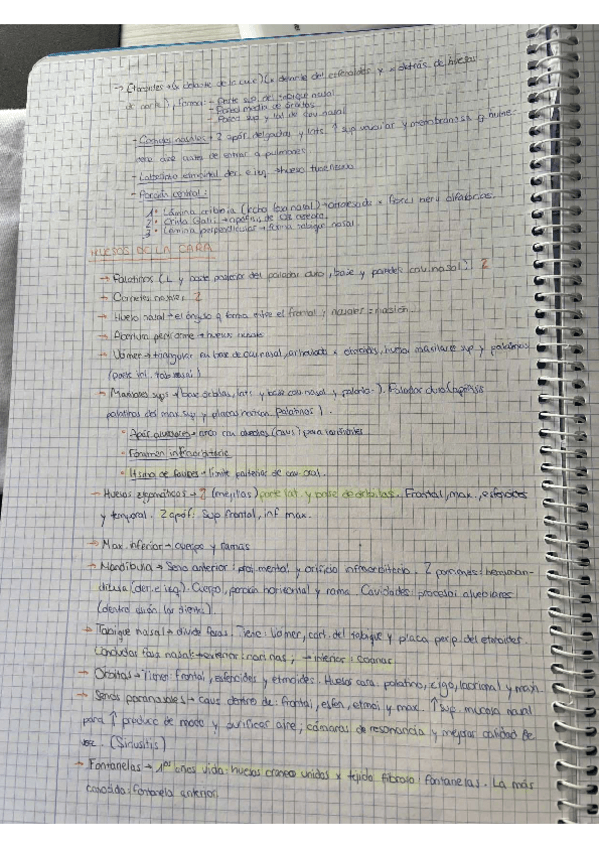 → Etmoides → delante de la cav. (x delante del esfenoides y x detrás de huesos
de nariz), forma: - Parte sup. del tabique nasal
- Pared media de órbitas
- Pared sup y lat de cav. nasal
- Cornetes nasales → 2 apóf. delgadas y lats. ↑ sup vascular y membranosa q hume-
dece aire antes de entrar a pulmones.
- Laberinto etmoidal der. e izq →
- Porción central:
1º Lámina cribosa (techo fosa nasal) → atravesada x fibras nerv. olfatorias.
2º Crista Galli →
3º Lámina perpendicular → forma tabique nasal.
HUESOS DE LA CARA
→ Palatinos (L y parte posterior del paladar duro, base y paredes cav. nasal). 2
→ Cornetes nasales 2
→ Hueso nasal → el ángulo q forma entre el frontal y nasales = nasión.
→ Apertura piriforme → huesos nasales
→ Vómer → triangular en base de cav nasal, articulado x etmoides, huesos maxilares sup y palatinos
(parte inf. tab nasal)
→ Maxilares sups → (base órbitas, lats y base cav nasal y paladar). Paladar duro (apófisis
palatinas del max sup y placas horizon. palatinos).
• Apóf alveolares → arco con alveolos (cavs) para los dientes
• Foramen infraorbitario
• Istmo de fauces → límite posterior de cav. oral.
→ Huesos zigomáticos → 2 (mejillas) parte lat. y base de órbitas. Frontal, max., esfenoides
y temporal. 2 apóf: Sup frontal, inf max.
→ Max. inferior → cuerpo y ramas
→ Mandíbula → Seno anterior: mental y orificio infraorbitario. 2 porciones: heminman-
díbula (der. e izq). Cuerpo, porción horizontal y rama. Cavidades: procesos alveolares
(dentro están los dientes).
→ Tabique nasal → divide fosas. Tiene: Vómer, cart. del tabique y placa perp. del etmoides.
Conductos fosa nasal: → exterior: narinas; → interior: Coanas.
→ Órbitas → Tienen: frontal, esfenoides y etmoides. Huesos cara: palatino, cigo, lacrimal y max.
→ Senos paranasales → cavs dentro de: frontal, esfen, etmoi y max. ↑ sup. mucosa nasal
para ↑ produce de moco y purificar aire; cámaras de resonancia y mejorar calidad de
voz. (Sinusitis)
→ Fontanelas → 1os años vida: huesos cráneo unidos x tejido fibroso: fontanelas. La más
conocida: fontanela anterior.